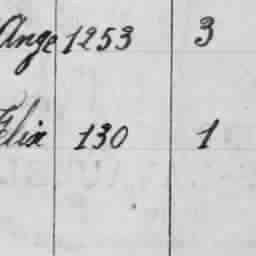 Ange 1253 3
Elix 130 1